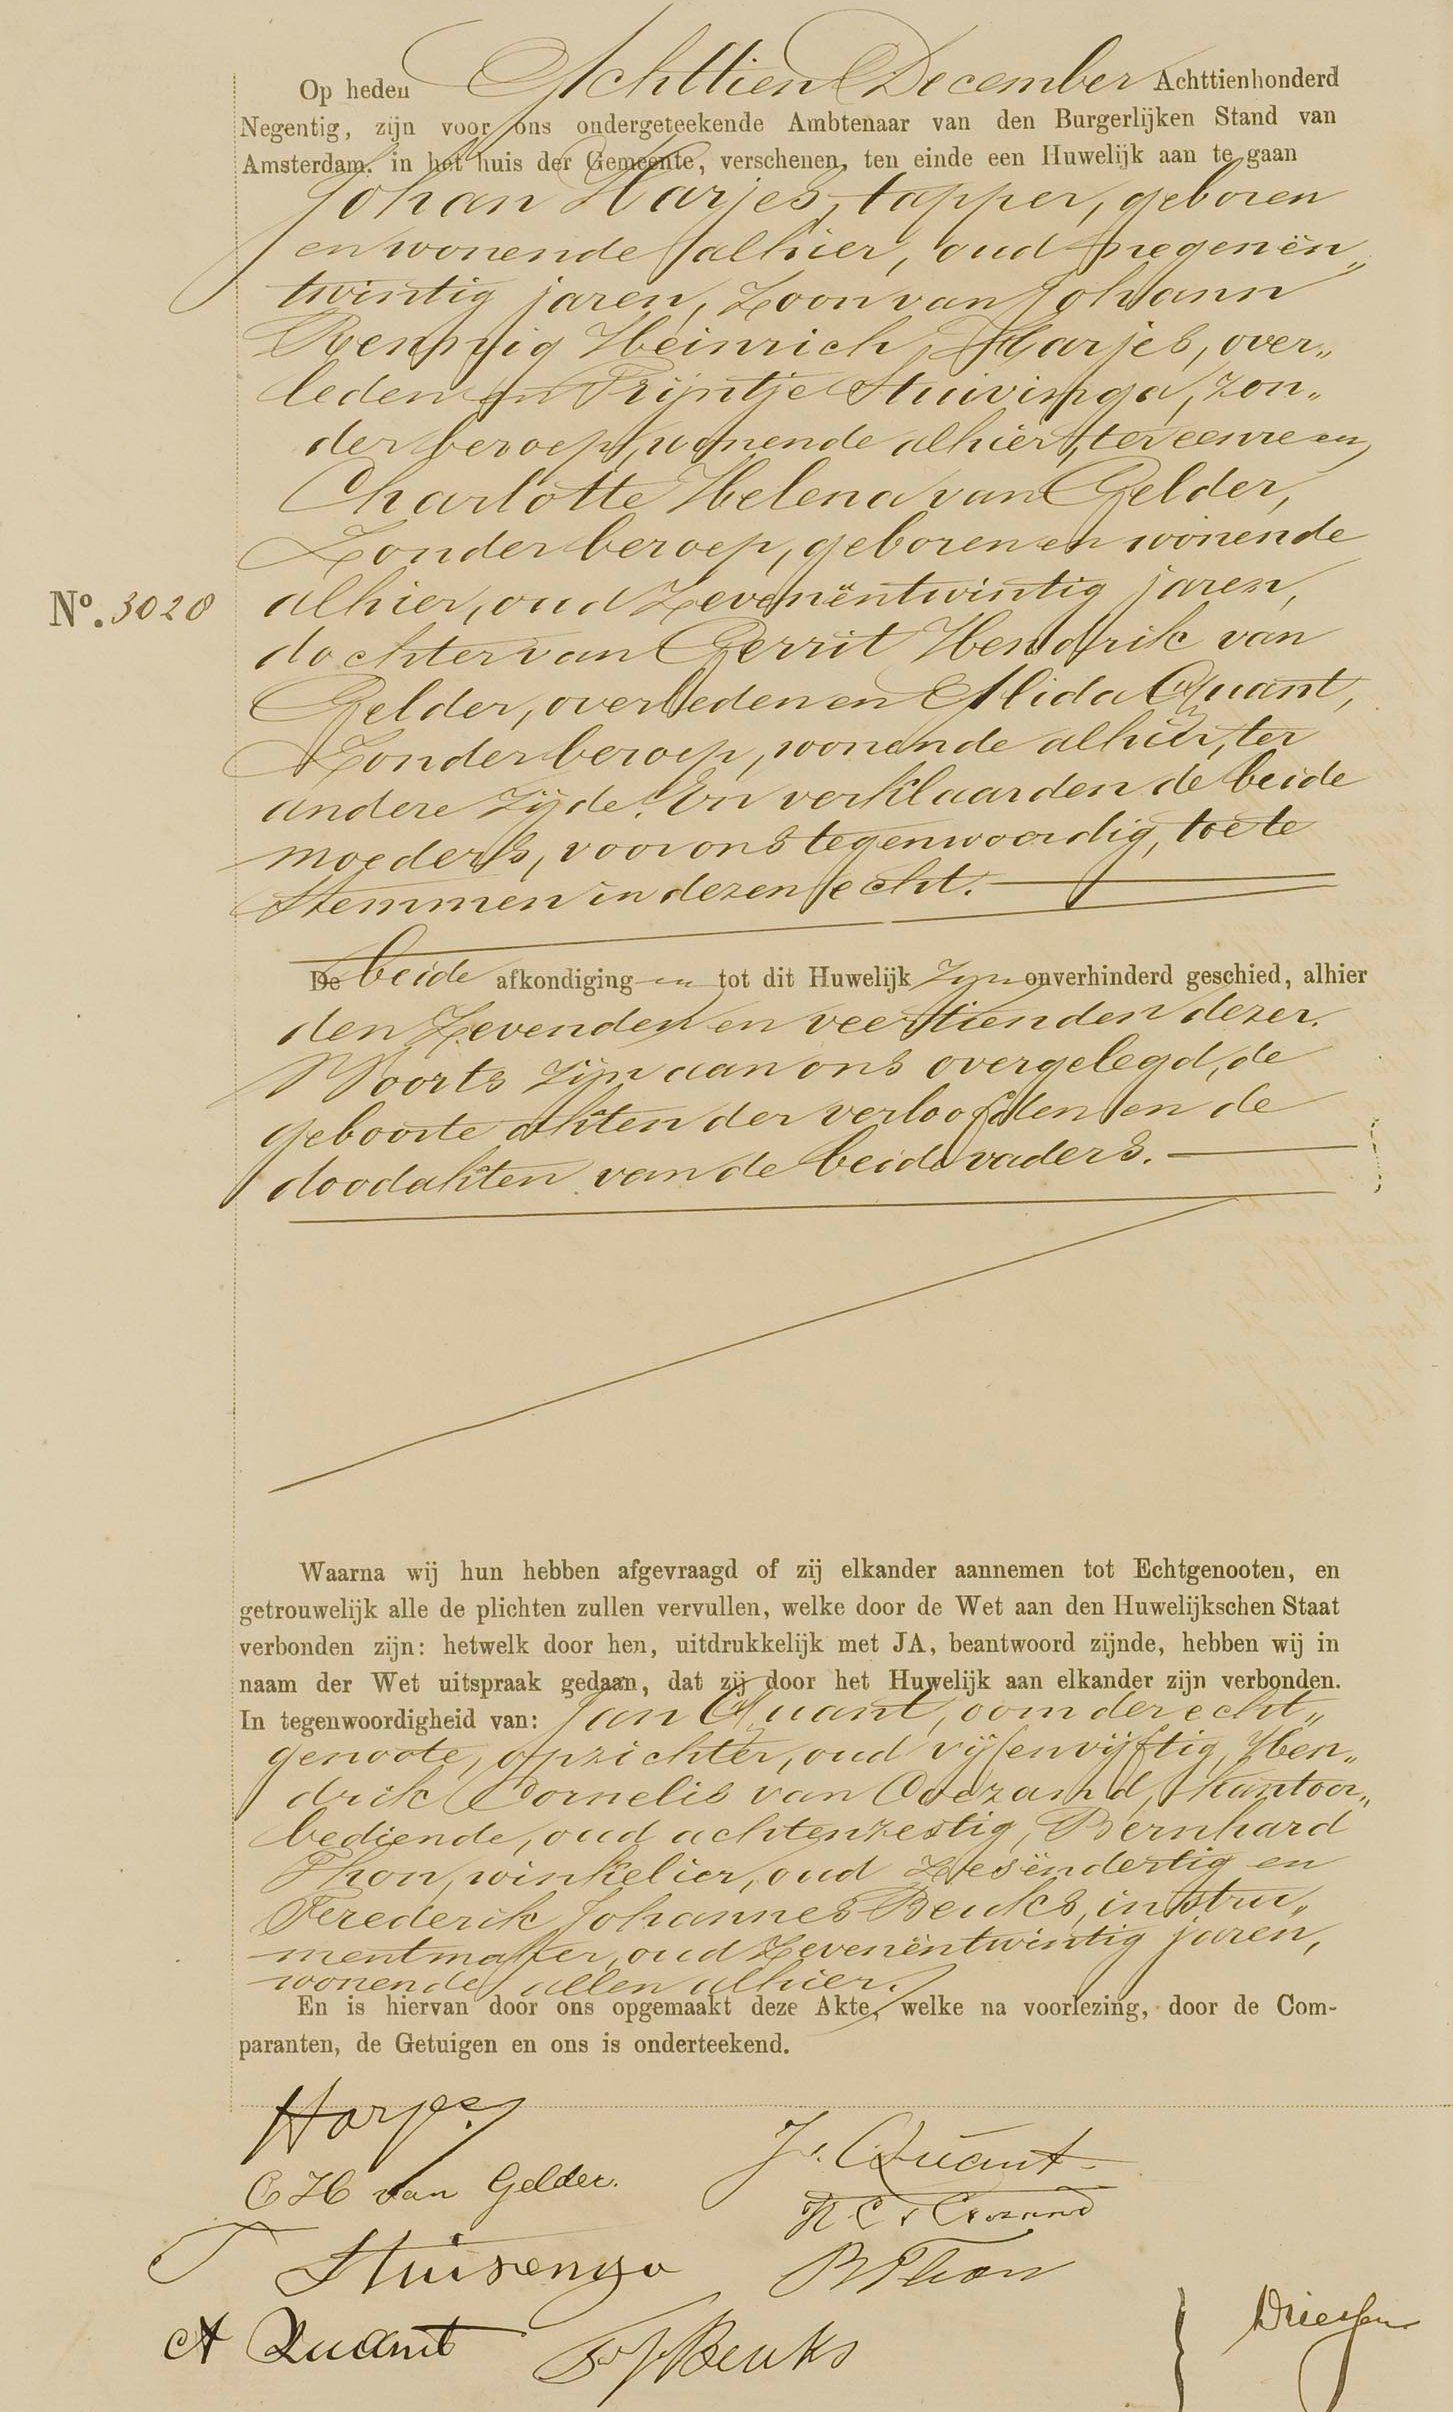 Op heden Achttien December Achttienhonderd
Negentig, zijn voor ons ondergeteekende Ambtenaar van den Burgerlijken Stand van
Amsterdam, in het huis der Gemeente, verschenen, ten einde een Huwelijk aan te gaan
Johan Harjes, tapper, geboren
en wonende alhier, oud negenën„
twintig jaren, Zoon van Johann
Heinrich Harjes, over„
leden en Trijntje Stuivinga, zon„
der beroep, wonende alhier, ter eenre en
Charlotte Helena van Gelder,
Zonder beroep, geboren en wonende
No. 3028 alhier, oud Zevenëntwintig jaren,
dochter van Gerrit Hendrik van
Gelder, overleden en Alida Quant,
Zonder beroep, wonende alhier, ter
andere Zijde. En verklaarden de beide
moeders, voor ons tegenwoordig, toe te
Stemmen in dezen echt.
De beide afkondiging en tot dit Huwelijk Zijn onverhinderd geschied, alhier
den Zevenden en veertienden dezer.
Voorts zijn aan ons overgelegd, de
geboorte akten der verloofden en de
doodakten van de beide vaders.
Waarna wij hun hebben afgevraagd of zij elkander aannemen tot Echtgenooten, en
getrouwelijk alle de plichten zullen vervullen, welke door de Wet aan den Huwelijkschen Staat
verbonden zijn: hetwelk door hen, uitdrukkelijk met JA, beantwoord zijnde, hebben wij in
naam der Wet uitspraak gedaan, dat zij door het Huwelijk aan elkander zijn verbonden.
In tegenwoordigheid van: Jan Quant, oom der echt„
genoote, opzichter, oud vijfenvijftig, Hen„
drik Cornelis van Oezand, kantoor„
bediende, oud achtenzestig, Bernhard
Thon, winkelier, oud Zesëndertig en
Frederik Johannes Beuks, instru„
mentmaker, oud Zevenëntwintig jaren,
wonende allen alhier.
En is hiervan door ons opgemaakt deze Akte, welke na voorlezing, door de Com-
paranten, de Getuigen en ons is onderteekend.
Harjes
C H van Gelder.
J. Quant
T Stuivenga
B Thon
A Quant
F J Beuks
Driessen